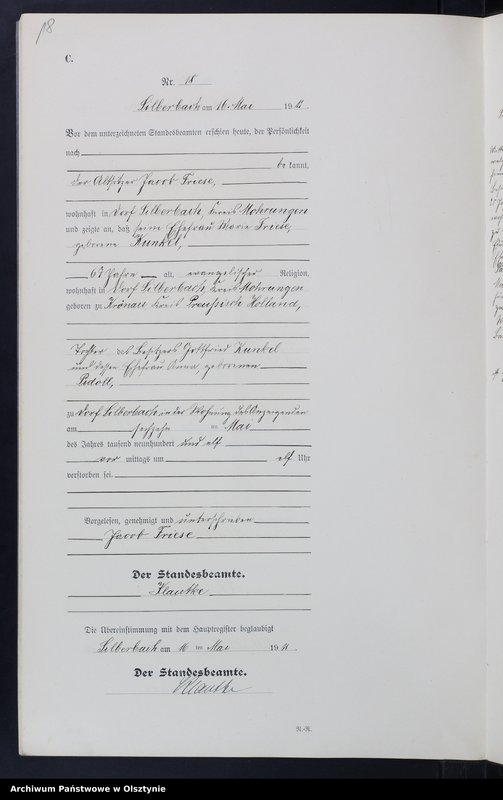 18
C.
Nr. 18
Silberbach am 16. Mai 1911.
Vor dem unterzeichneten Standesbeamten erschien heute, der Persönlichkeit
nach
be kannt,
der Altsitzer Jacob Friese,
wohnhaft in Dorf Silberbach, Kreis Mohrungen
und zeigte an, daß seine Ehefrau Marie Friese,
geborene Kunkel,
67 Jahre alt, evangelischer Religion,
wohnhaft in Dorf Silberbach, Kreis Mohrungen
geboren zu Krönau, Kreis Preußisch Holland,
Tochter des Besitzers Gottfried Kunkel
und dessen Ehefrau Anna, geborenen
Pidoll,
zu Dorf Silberbach in der Wohnung des Anzeigenden
am sechzehn ten Mai
des Jahres tausend neunhundert und elf
vor mittags um elf Uhr
verstorben sei.
Vorgelesen, genehmigt und unterschrieben
Jacob Friese
Der Standesbeamte.
Klautke
Die Übereinstimmung mit dem Hauptregister beglaubigt
Silberbach am 16 ten Mai 1911.
Der Standesbeamte.
Klautke
N.-R.
Archiwum Państwowe w Olsztynie